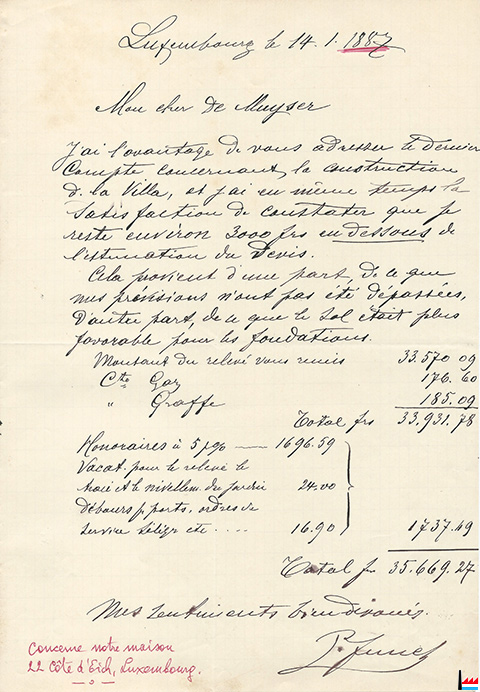 Luxembourg le 14.1.1887
Mon cher De Muyser
J'ai l'avantage de vous adresser le dernier
Compte concernant la construction
de la Villa, et j'ai en même temps la
satisfaction de constater que je
reste environ 3000 frs en dessous de
l'estimation du Devis.
Cela provient d'une part de ce que
mes prévisions n'ont pas été dépassées,
D'autre part, de ce que le sol était plus
favorable pour les fondations.
Montant du relevé vous remis 33.570 09
Cte Gaz 176.60
" Graffe 185.09
Total frs 33.931.78
Honoraires à 5 p% 1696.59
Vacat. pour le relevé le
tracé et le nivellem. du jardin 24.00
Débours p. ports, ordres de
service télégr etc .... 16.90 1737.49
Total fr 35.669.27
Mes sentiments bien dévoués.
P. Funck
Concerne notre maison
22 Côte d'Eich, Luxembourg.